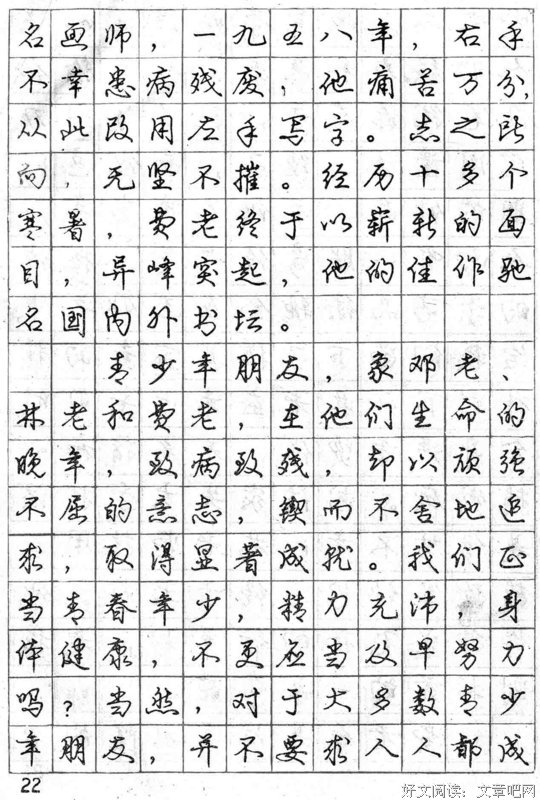 名画师，一九五八年，右手
不幸患病残废，他痛苦万分，
从此改用左手写字。志之所
向，无坚不摧。经历十多个
寒暑，费老终于以崭新的面
目，异峰突起，他的佳作驰
名国内外书坛。
青少年朋友，象邓老、
林老和费老，在他们生命的
晚年，致病致残，却以顽强
不屈的意志，锲而不舍地追
求，取得显著成就。我们正
当青春年少，精力充沛，身
体健康，不更应当及早努力
吗？当然，对于大多数青少
年朋友，并不要求人人都成
22
好文阅读：文章吧网